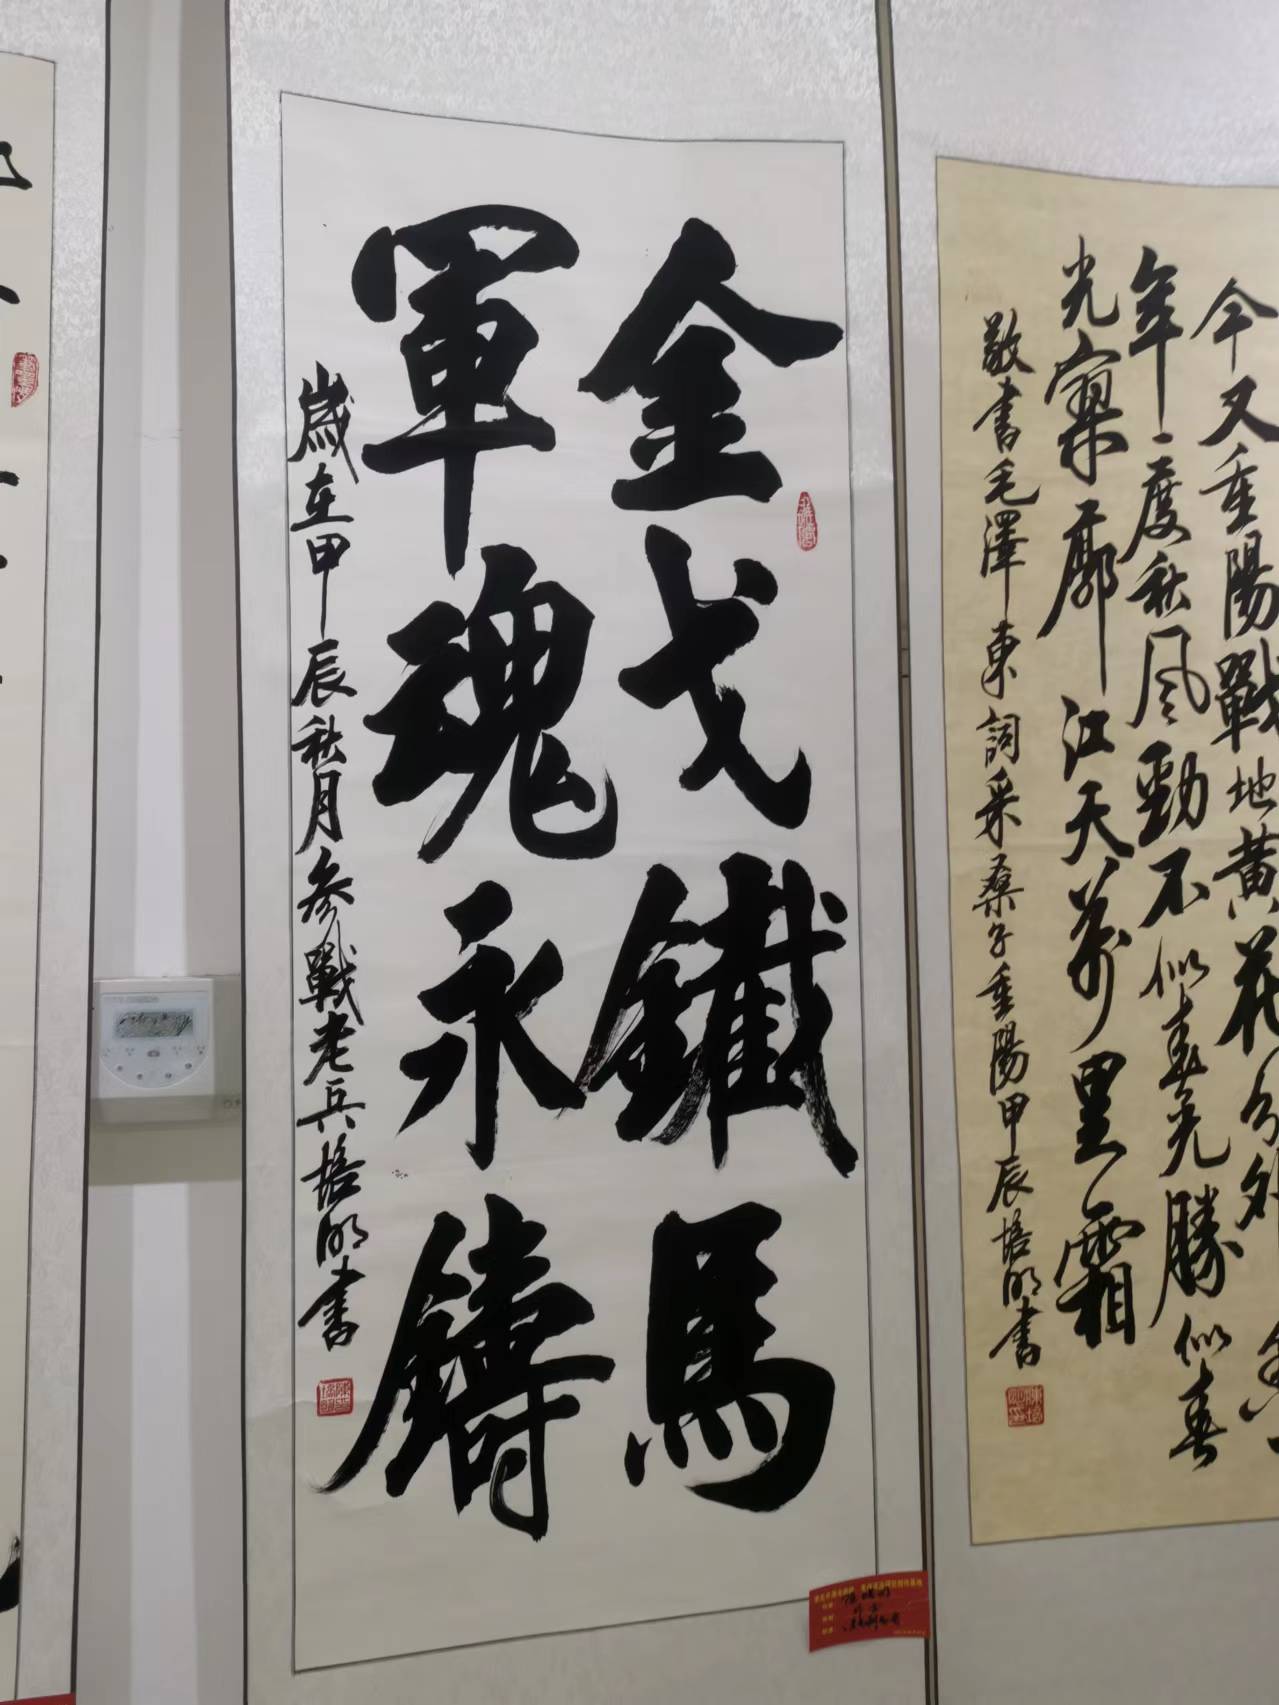 金戈鐵馬
軍魂永鑄
歲在甲辰秋月參戰老兵培明書
今又重陽戰地黃花分外
年一度秋風勁不似春光勝似春
光寥廓江天萬里霜
敬書毛澤東詞采桑子重陽甲辰培明書